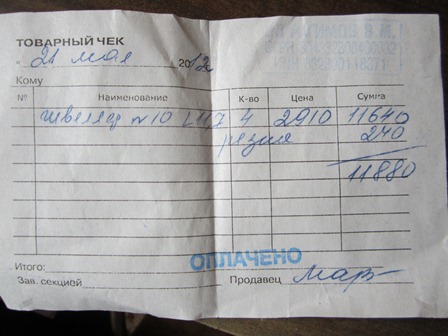 ТОВАРНЫЙ ЧЕК
« 21 » мая 2012г
Кому
№ Наименование К-во Цена Сумма
швеллер №10 L11,7 4 2910 11640
резка 240
11880
Итого:
ОПЛАЧЕНО
Зав. секцией Продавец